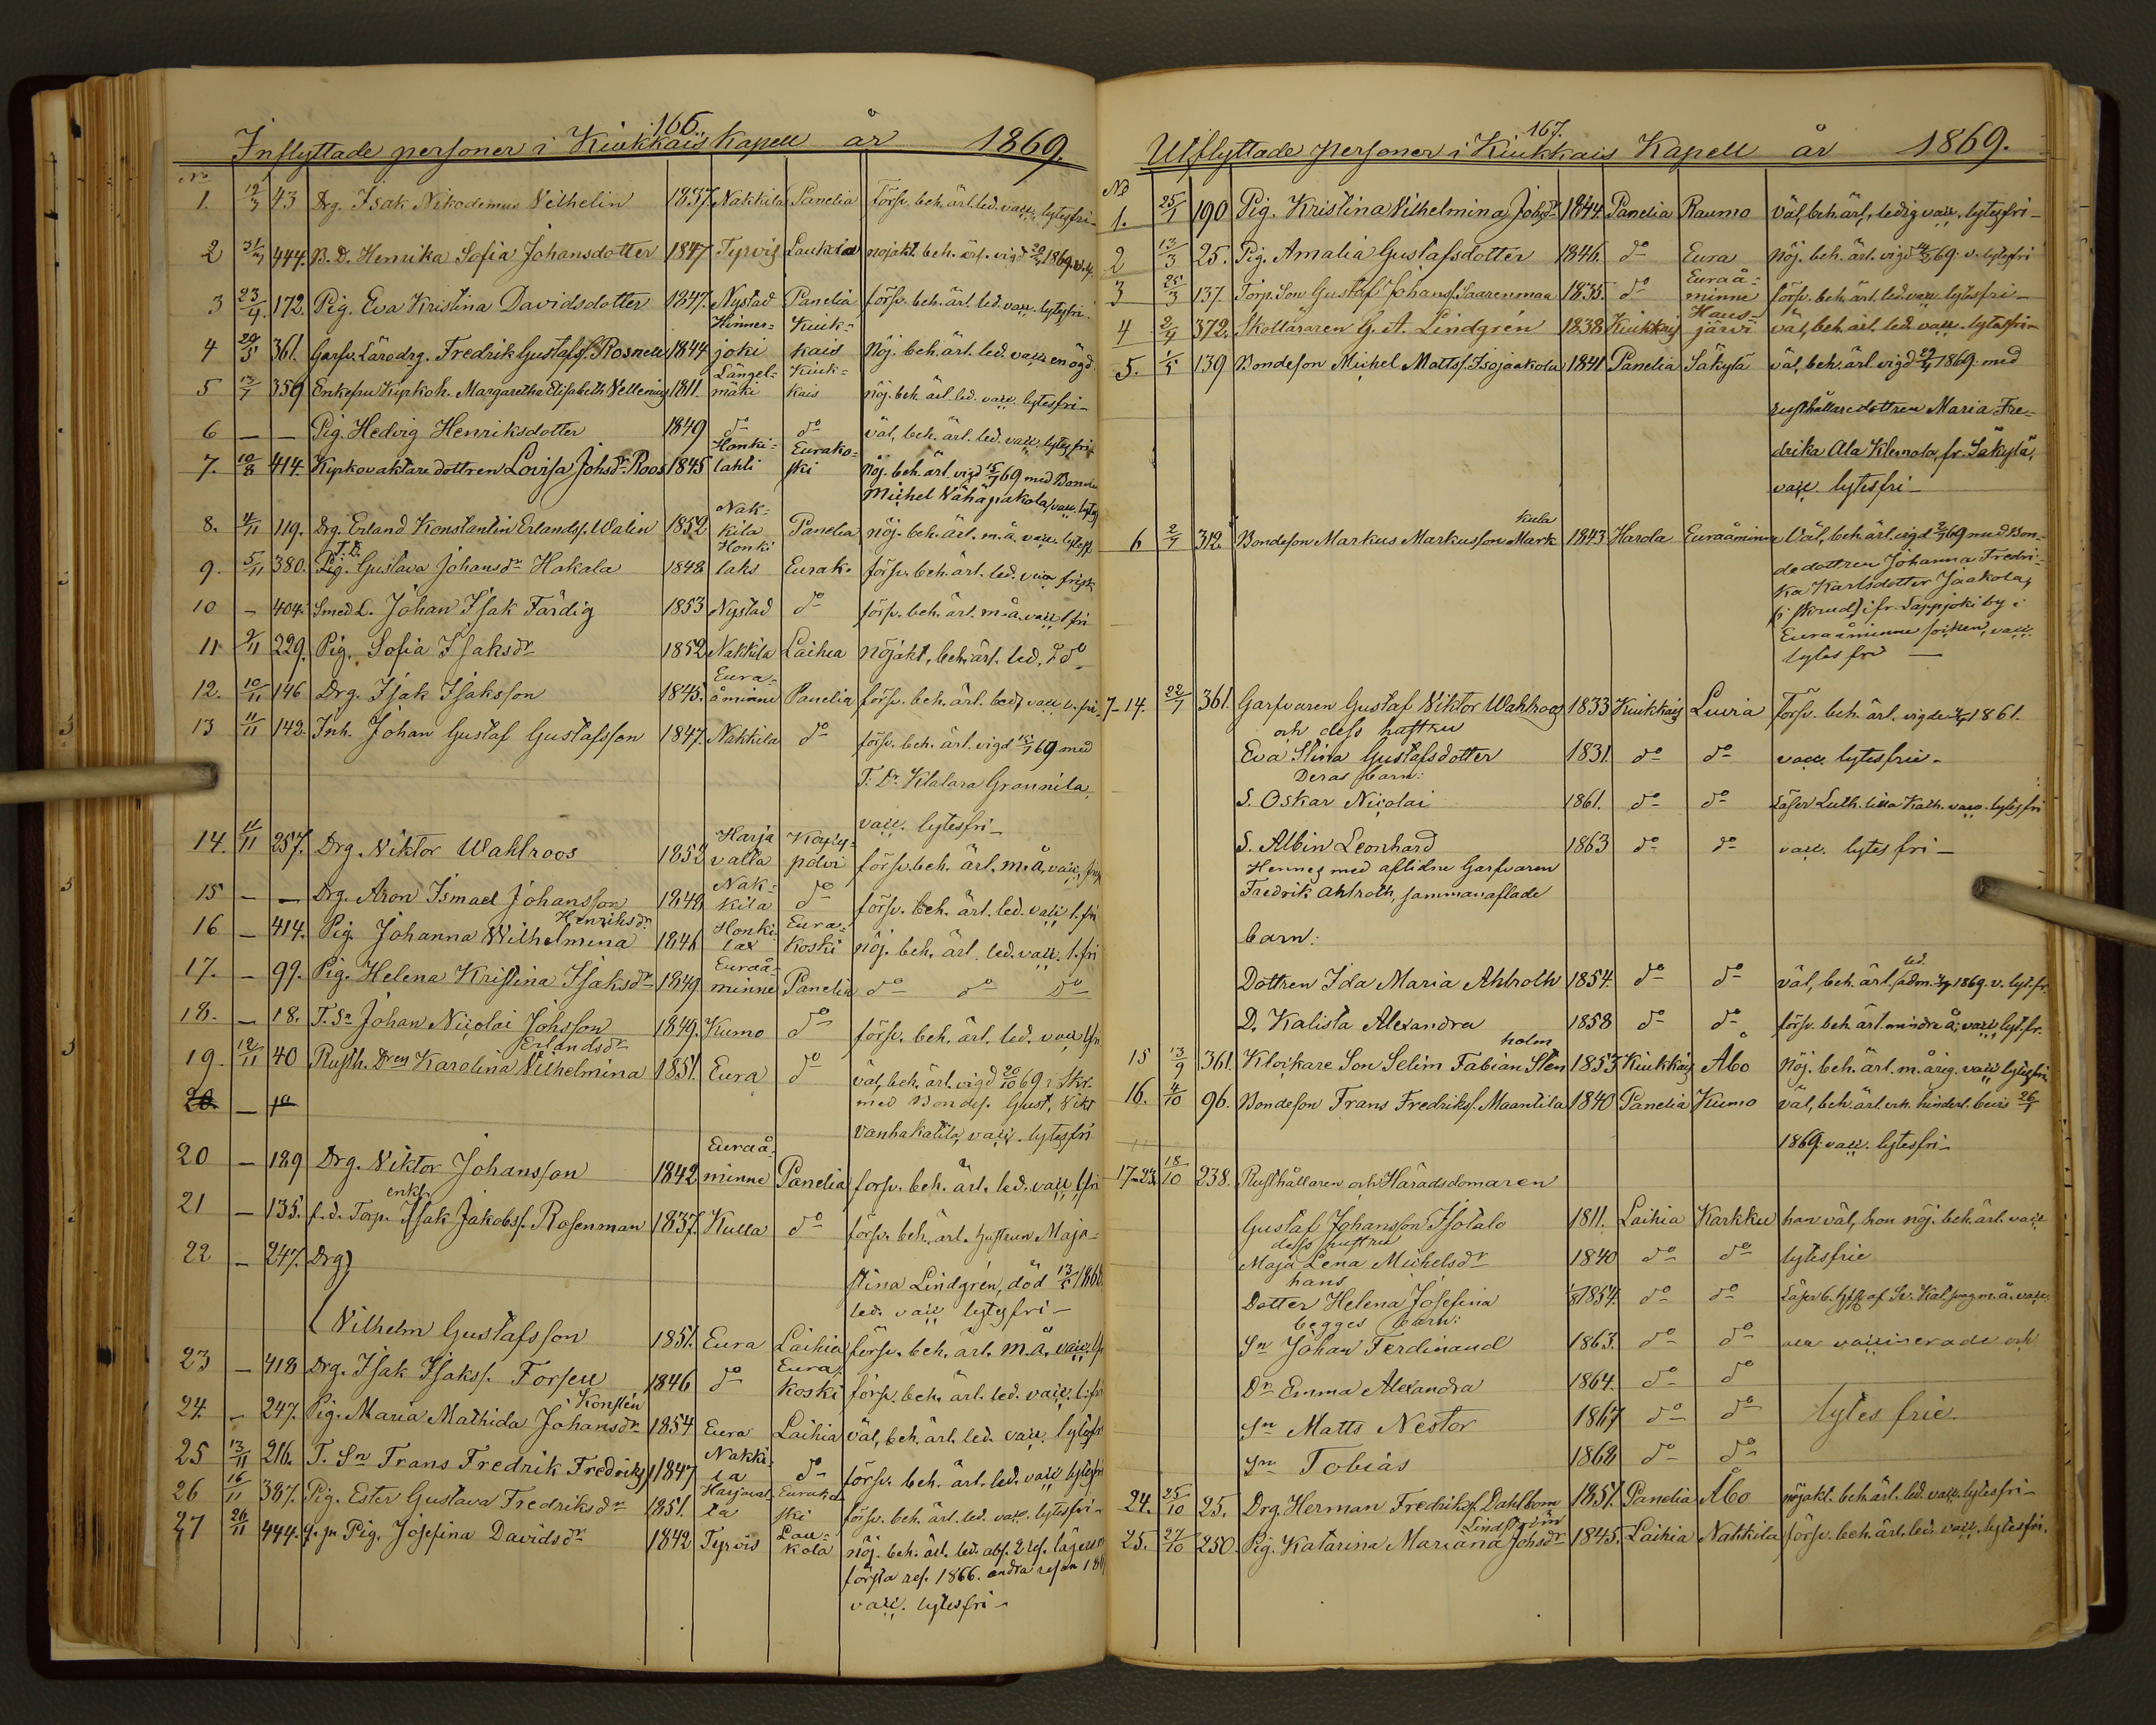 166.
Inflyttade personer i Kiukkais Kapell år 1869.
No
1. 12/3 43 Drg. Isak Nikodemus Vilhelin 1837 Nakkila Panelia försv. beh. ärl. led. vacc. lytesfri-
2 444. B. D. Henrika Sofia Johansdotter 1847 Tyrvis Laukola nöjakt. beh. ärl. vigd 1869.
3 23/4 172. Pig. Eva Kristina Davidsdotter 1847. Nystad Panelia försv. beh. ärl. led. vacc. lytesfri.
4 29/5 361. Garfv. Lärodrg. Fredrik Gustafsf. Rosnell 1844 Hinner=joki Kiuk=kais Nöj. beh. ärl. led. vacc. enögd.
5 13/7 359 Enkefru Kyrkoh. Margaretha Elisabeth Vellenius 1811. Längel=mäki Kiuk=kais nöj. beh. ärl. led. vacc. lytesfri-
6 — — Pig. Hedvig Henriksdotter 1849 do do väl, beh. ärl. led. vacc. lytesfri
7. 10/8 414. Kyrkovaktare dottren Lovisa Johsdr. Roos 1845 Honki=lahti Eurako=ski nöj. beh. ärl. vigd 15/7 69 med Bonden
Michel Vähäpakola, vacc. lytesf
8. 4/11 119. Drg. Erland Konstantin Erlandsf. Walin 1852 Nak=kila Panelia nöj. beh. ärl. m. å. vacc. lytesf
9. 5/11 380. T. D. Gustava Johansdr Hakala 1848 Honki laks Eurak. försv. beh. ärl. led. vacc. frisk
10 - 404. Smed L. Johan Isak Färdig 1853 Nystad do försv. beh. ärl. m. å. vacc l fri
11 9/11 229. Pig. Sofia Isaksdr 1852 Nakkila Laihia nöjakt, beh. ärl. led. do
12. 10/11 146 Drg. Isak Isaksson 1845. Eura=åminne Panelia försv. beh. ärl. led. vacc l. fri.
13 11/11 142. Inh. Johan Gustaf Gustafsson 1847. Nakkila do försv. beh. ärl. vigd 69 med
T. Dr. Klalara Grannila,
vacc. lytesfri-
14. 11/11 257. Drg. Viktor Wahlroos 1852 Harja valta Köyly=polvi försv. beh. ärl. m. å. vacc.
15 - — Drg. Aron Ismael Johansson 1848 Nak=kila do försv. beh. ärl. led. vacc l. fri
16 - 414. Pig. Johanna Wilhelmina Henriksdr. 1846 Honki lax Eura=koski nöj. beh. ärl. led. vacc. l. fri
17. - 99. Pig. Helena Kristina Isaksdr 1849 Euraå=minne Panelia do do do
18. - 18. T. Sn Johan Nicolai Johsson 1849. Kumo do försv. beh. ärl. led. vacc lfri
19. 12/11 40 Rusth. Dren Karolina Vilhelmina Erlandsdr 1851. Eura do väl, beh. ärl. vigd 20/10 69 i Skr.
med Bondes. Gust. Vikt
Vanhakatila, vacc. lytesfri
20 - 189 Drg. Viktor Johansson 1842 Euraå=minne Panelia försv. beh. ärl. led. vacc lfri
21 - 135. f. d. Torp. enkl. Isak Jakobsf. Rosenman 1837. Kulla do försv. beh. ärl. hustrun Maja=
stina Lindgrén, död 186
led. vacc lytesfri -
22 - 247. Drg) Vilhelm Gustafsson 1851. Eura Laihia försv. beh. ärl. m. å. vacc. lf
23 - 418 Drg. Isak Isaksf. Forsell 1846 do Eura koski försv. beh. ärl. led. vacc. l. fri
24. - 247. Pig. Maria Mathida Johansdr Konstén 1854 Eura Laihia väl, beh. ärl. led. vacc. lytesf
25 13/11 216. T. Sn Frans Fredrik Fredriksf 1847 Nakki la do försv. beh. ärl. led. vacc lytesfri
26 16/11 387. Pig. Ester Gustava Fredriksdr 1851. Harjaval ta Eurako ski försv. beh. ärl. led. vacc. lytesfri-
27 26/11 444. Pig. Josefina Davidsdr 1842 Tyrvis Lau=kola nöj. beh. ärl. led. abs. 2 res. lägersm
första res. 1866. andra resan 18
vacc. lytesfri-
167.
Utflyttade personer i Kiukkais Kapell år 1869.
No
1. 25/1 190 Pig. Kristina Vilhelmina Johsdr 1844. Panelia Raumo väl, beh. ärl, ledig vacc, lytesfri-
2 13/3 25. Pig. Amalia Gustafsdotter 1846. do Eura nöj. beh. ärl. vigd 69. v. lytesfri
3 25/3 137. Torp. Son Gustaf Johansf. Saarenmaa 1835. do Euraå=minne försv. beh. ärl. led. vacc. lytesfri-
4 2/4 372. Skolläraren G. A. Lindgrén 1838 Kiukkais Haus=järvi väl, beh. ärl. led. vacc. lytesfri-
5. 1/5 139 Bondeson Michel Mattsf. Isojaakola 1841 Panelia Säkylä väl, beh. ärl. vigd 1869. med
rusthållaredottren Maria Fre=
drika Ala Klemola, fr. Säkylä,
vacc. lytesfri-
6 2/7 312. Bondeson Markus Markusson Markkula 1843 Harola Euraåminne Väl, beh. ärl. vigd 69 med Bon=
dedottren Johanna Fredri=
ka Karlsdotter Jaakola,
(: skrud) i fr. Lappjoki by i
Euraåminne socken, vacc.
lytes fri —
7-14. 22/7 361. Garfvaren Gustaf Viktor Wahlroos 1833 Kiukkais Luvia Försv. beh. ärl. vigde 1861.
och dess hustru
Eva Stina Gustafsdotter 1831. do do vacc. lytesfrie-
Deras barn:
S. Oskar Nicolai 1861. do do Läser Luth. lilla Kath. vacc. lytesfri
S. Albin Leonhard 1863 do do vacc. lytes fri-
Hennes med aflidne Garfvaren
Fredrik Ahlroth, sammanaflade
barn:
Dottren Ida Maria Ahlroth 1854. do do väl, beh. ärl. led. adm. 1869. v. lyt. fr.
D. Kalista Alexandra 1858 do do försv. beh. ärl. mindre å, vacc lyt. fr.
15 13/9 361. Klockare Son Selim Fabian Stenholm 1853 Kiukkais Åbo Nöj. beh. ärl. m. årig. vacc lytesfri.
16. 4/10 96. Bondeson Frans Fredriksf. Maantila 1840 Panelia Kumo väl, beh. ärl. erh. hinderl. bevis 26/9
1869. vacc. lytesfri-
17-23. 18/10 238. Rusthållaren och Häradsdomaren
Gustaf Johansson Isotalo 1811. Laihia Karkku han väl, hon nöj. beh. ärl. vacc
dess hustru
Maja Lena Michelsdr 1840 do do lytesfrie
hans
Dotter Helena Josefina 1854. do do
begges barn:
Sn Johan Ferdinand 1863. do do alla vaccinerade och
Dr Emma Alexandra 1864. do do
Sn Matts Nestor 1867 do do lytes frie.
Sn Tobias 1868 do do
24. 25/10 25. Drg. Herman Fredriksf. Dahlbom 1851. Panelia Åbo nöjakt. beh. ärl. led. vacc. lytesfri-
25. 27/10 250. Pig. Katarina Mariana Johsdr Lindström 1845. Laihia Nakkila försv. beh. ärl. led. vacc. lytesfri.